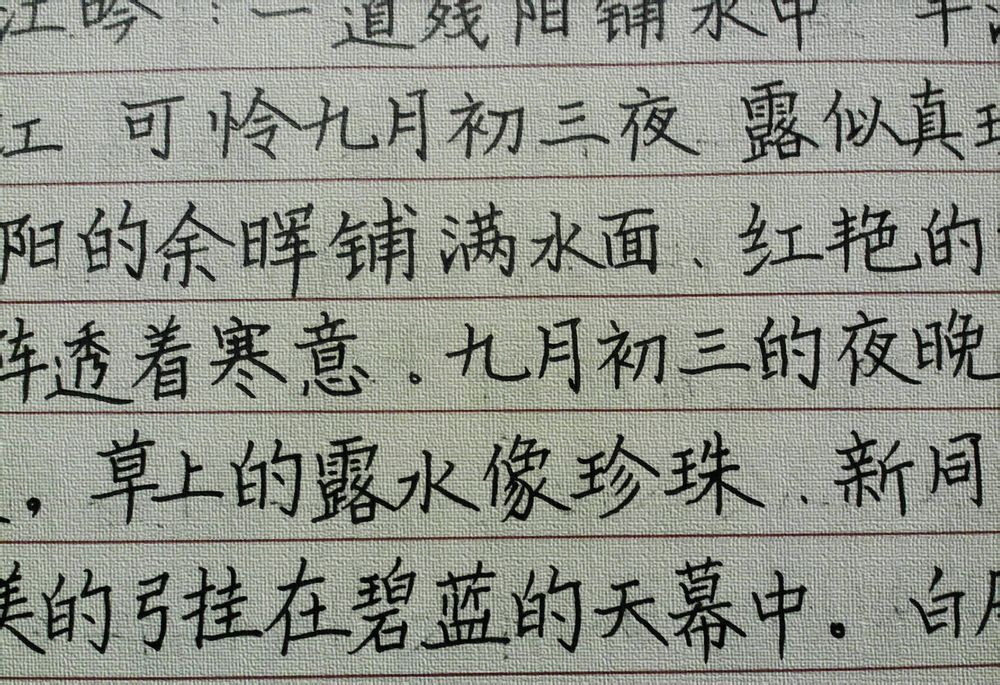 江吟：一道残阳铺水中 半
江 可怜九月初三夜 露似真
阳的余晖铺满水面、红艳的
阵透着寒意。九月初三的夜晚
。草上的露水像珍珠、新同
美的弓挂在碧蓝的天幕中。白